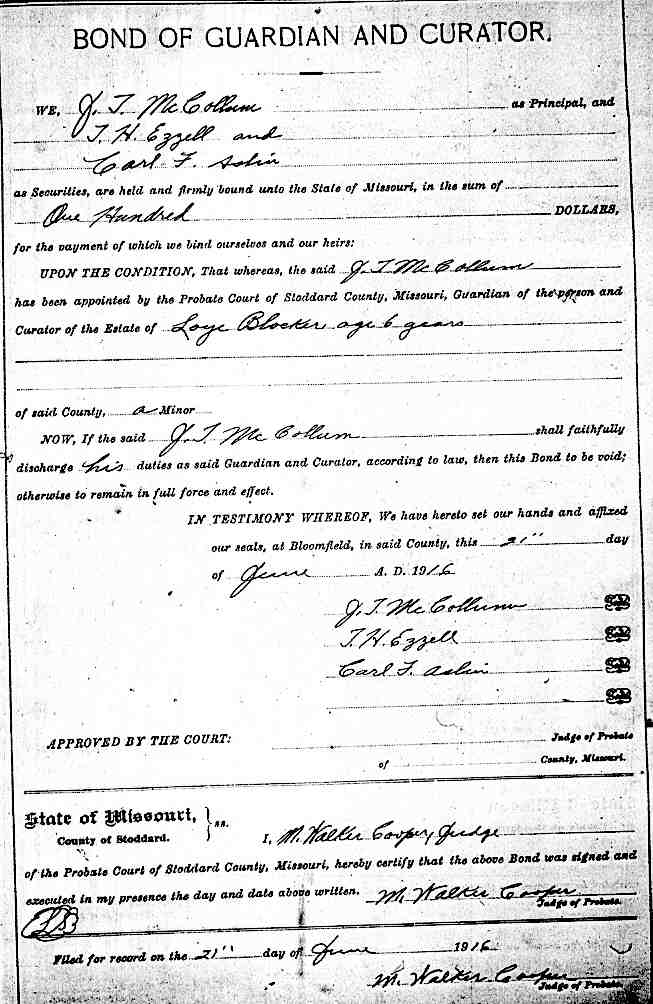 BOND OF GUARDIAN AND CURATOR.
WE, J. T. McCollum as Principal, and
T. H. Ezzell and
Carl F. Ashin
as Securities, are held and firmly bound unto the State of Missouri, in the sum of
One Hundred DOLLARS,
for the payment of which we bind ourselves and our heirs:
UPON THE CONDITION, That whereas, the said J. T. McCollum
has been appointed by the Probate Court of Stoddard County, Missouri, Guardian of the person and
Curator of the Estate of Loye Blocker age 6 years
of said County, a Minor
NOW, If the said J. T. McCollum shall faithfully
discharge his duties as said Guardian and Curator, according to law, then this Bond to be void;
otherwise to remain in full force and effect.
IN TESTIMONY WHEREOF, We have hereto set our hands and affixed
our seals, at Bloomfield, in said County, this 21" day
of June A. D. 1916
J. T. McCollum
T. H. Ezzell
Carl F. Ashin
APPROVED BY THE COURT: Judge of Probate
of County, Missouri.
State of Missouri, } ss.
County of Stoddard. I, M. Walker Cooper, Judge
of the Probate Court of Stoddard County, Missouri, hereby certify that the above Bond was signed and
executed in my presence the day and date above written. M. Walker Cooper
Judge of Probate.
Filed for record on the 21" day of June 1916
M. Walker Cooper
Judge of Probate.